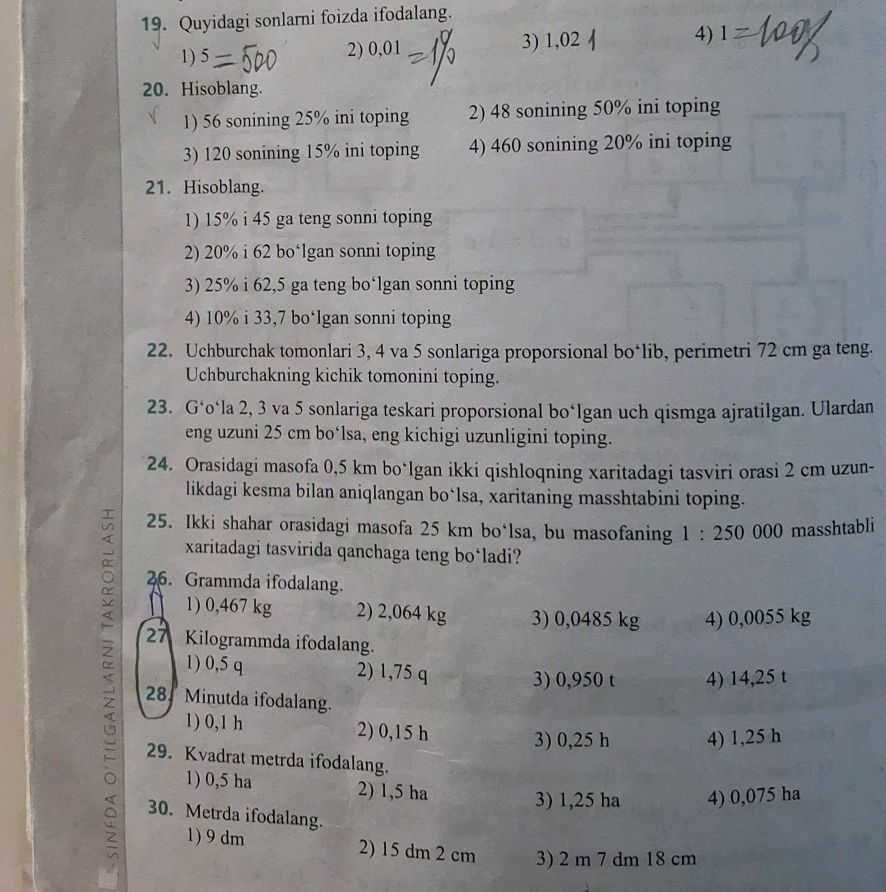 19. Quyidagi sonlarni foizda ifodalang.
1) 5 = 500 2) 0,01 = 1% 3) 1,02 1 4) 1 = 100%
20. Hisoblang.
1) 56 sonining 25% ini toping 2) 48 sonining 50% ini toping
3) 120 sonining 15% ini toping 4) 460 sonining 20% ini toping
21. Hisoblang.
1) 15% i 45 ga teng sonni toping
2) 20% i 62 bo‘lgan sonni toping
3) 25% i 62,5 ga teng bo‘lgan sonni toping
4) 10% i 33,7 bo‘lgan sonni toping
22. Uchburchak tomonlari 3, 4 va 5 sonlariga proporsional bo‘lib, perimetri 72 cm ga teng.
Uchburchakning kichik tomonini toping.
23. G‘o‘la 2, 3 va 5 sonlariga teskari proporsional bo‘lgan uch qismga ajratilgan. Ulardan
eng uzuni 25 cm bo‘lsa, eng kichigi uzunligini toping.
24. Orasidagi masofa 0,5 km bo‘lgan ikki qishloqning xaritadagi tasviri orasi 2 cm uzun-
likdagi kesma bilan aniqlangan bo‘lsa, xaritaning masshtabini toping.
25. Ikki shahar orasidagi masofa 25 km bo‘lsa, bu masofaning 1 : 250 000 masshtabli
xaritadagi tasvirida qanchaga teng bo‘ladi?
26. Grammda ifodalang.
1) 0,467 kg 2) 2,064 kg 3) 0,0485 kg 4) 0,0055 kg
27 Kilogrammda ifodalang.
1) 0,5 q 2) 1,75 q 3) 0,950 t 4) 14,25 t
28 Minutda ifodalang.
1) 0,1 h 2) 0,15 h 3) 0,25 h 4) 1,25 h
29. Kvadrat metrda ifodalang.
1) 0,5 ha 2) 1,5 ha 3) 1,25 ha 4) 0,075 ha
30. Metrda ifodalang.
1) 9 dm 2) 15 dm 2 cm 3) 2 m 7 dm 18 cm
-SINFDA O‘TILGANLARNI TAKRORLASH